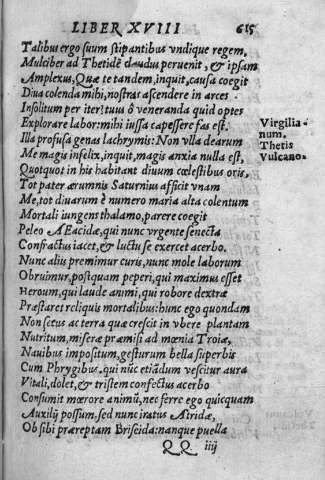 LIBER XVIII 615
Talibus ergo suum stipantibus vndique regem,
Mulciber ad Thetidē claudus peruenit, & ipsam
Amplexus, Quæ te tandem, inquit, causa coegit
Diua colenda mihi, nostras ascendere in arces
Insolitum per iter? tuus ô veneranda quid optes
Explorare labor: mihi iussa capessere fas est.
Virgilia-
num.
Thetis
Vulcano.
Illa profusa genas lachrymis: Non vlla dearum
Me magis infelix, inquit, magis anxia nulla est,
Quotquot in his habitant diuum cœlestibus oris,
Tot pater ærumnis Saturnius afficit vnam
Me, tot diuarum è numero maria alta colentum
Mortali iungens thalamo, parere coegit
Peleo AEacidæ, qui nunc vrgente senecta
Confractus iacet, & luctu se exercet acerbo.
Nunc aliis premimur curis, nunc mole laborum
Obruimur, postquam peperi, qui maximus esset
Heroum, qui laude animi, qui robore dextræ
Præstaret reliquis mortalibus: hunc ego quondam
Non secus ac terra quæ crescit in vbere plantam
Nutritum, miseræ præmisi ad mœnia Troiæ,
Nauibus impositum, gesturum bella superbis
Cum Phrygibus, qui nūc etiādum vescitur aura
Vitali, dolet, & tristem confectus acerbo
Consumit mœrore animū, nec ferre ego quicquam
Auxilij possum, sed nunc iratus Atridæ,
Ob sibi præreptam Briseida: nanque puella
QQ iiij